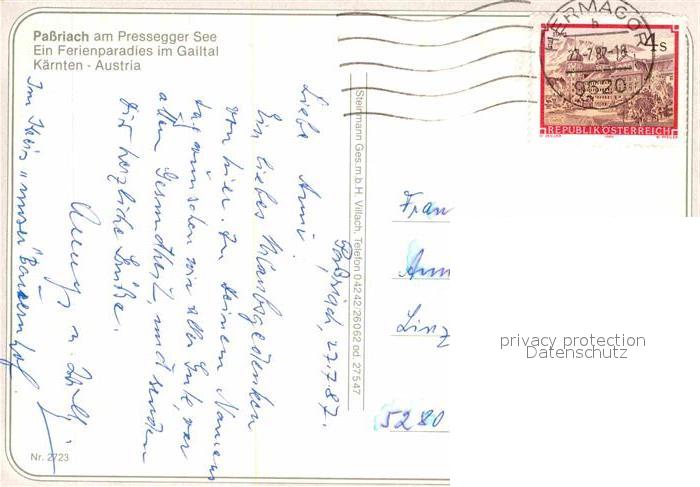 Paßriach am Pressegger See
Ein Ferienparadies im Gailtal
Kärnten - Austria
HERMAGOR
h
27-7.87-18
9620
4 s
REPUBLIK ÖSTERREICH
Paßriach, 27.7.87.
Liebe Anni!
Ein liebes Urlaubsgedenken
von hier. Zu Deinem Namens
tag wünschen wir alles Gute, vor
allem Gesundheit, und senden
Dir herzliche Grüße.
u. Willi
Im "unser Bauernhof"
Steinmann Ges.m.b.H. Villach, Telefon 04242/26062 od. 27547
Frau
Ann
Linz
5280
Nr. 2723
privacy protection
Datenschutz